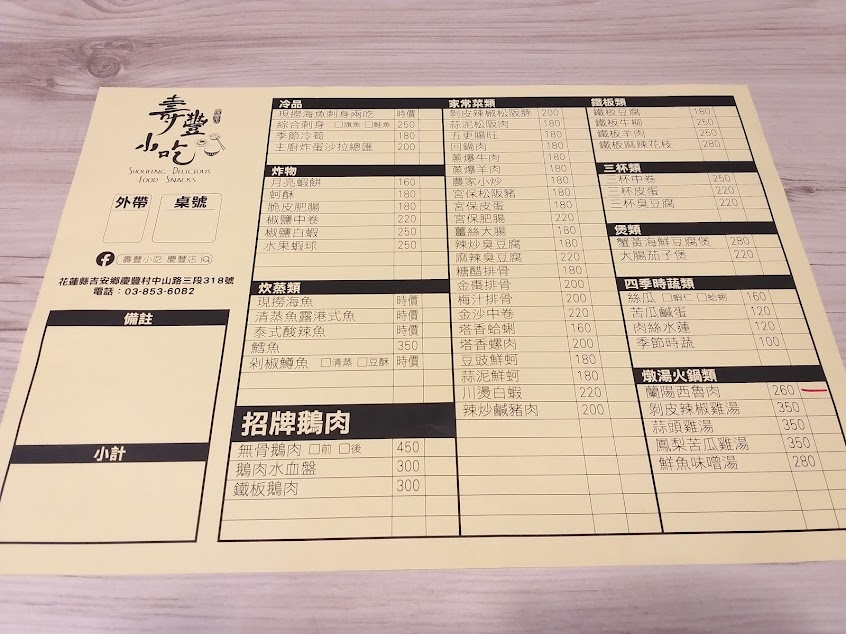 壽豐
小吃
SHOUFENG DELICIOUS
FOOD SNACKS
外帶
桌號
壽豐小吃 慶豐店
花蓮縣吉安鄉慶豐村中山路三段318號
電話：03-853-6082
備註
小計
冷品
現撈海魚刺身兩吃 時價
綜合刺身 □旗魚 □鮭魚 250
季節冷筍 180
主廚炸蛋沙拉總匯 200
炸物
月亮蝦餅 160
蚵酥 180
脆皮肥腸 180
椒鹽中卷 220
椒鹽白蝦 250
水果蝦球 250
炊蒸類
現撈海魚 時價
清蒸魚露港式魚 時價
泰式酸辣魚 時價
鱈魚 350
剁椒鱒魚 □清蒸 □豆酥 時價
招牌鵝肉
無骨鵝肉 □前 □後 450
鵝肉水血盤 300
鐵板鵝肉 300
家常菜類
剝皮辣椒松阪豚 200
蒜泥松阪肉 180
五更腸旺 180
回鍋肉 180
蔥爆牛肉 180
蔥爆羊肉 180
農家小炒 180
宮保松阪豬 180
宮保皮蛋 180
宮保肥腸 180
薑絲大腸 180
辣炒臭豆腐 180
麻辣臭豆腐 220
糖醋排骨 180
金棗排骨 200
梅汁排骨 200
金沙中卷 220
塔香蛤蜊 160
塔香螺肉 200
豆豉鮮蚵 180
蒜泥鮮蚵 180
川燙白蝦 220
辣炒鹹豬肉 200
鐵板類
鐵板豆腐 180
鐵板牛柳 250
鐵板羊肉 250
鐵板麻辣花枝 280
三杯類
三杯中卷 250
三杯皮蛋 220
三杯臭豆腐 220
煲類
蟹黃海鮮豆腐煲 280
大腸茄子煲 220
四季時蔬類
絲瓜 □蝦仁 □蛤蜊 160
苦瓜鹹蛋 120
肉絲水蓮 120
季節時蔬 100
燉湯火鍋類
蘭陽西魯肉 260
剝皮辣椒雞湯 350
蒜頭雞湯 350
鳳梨苦瓜雞湯 350
鮮魚味噌湯 280